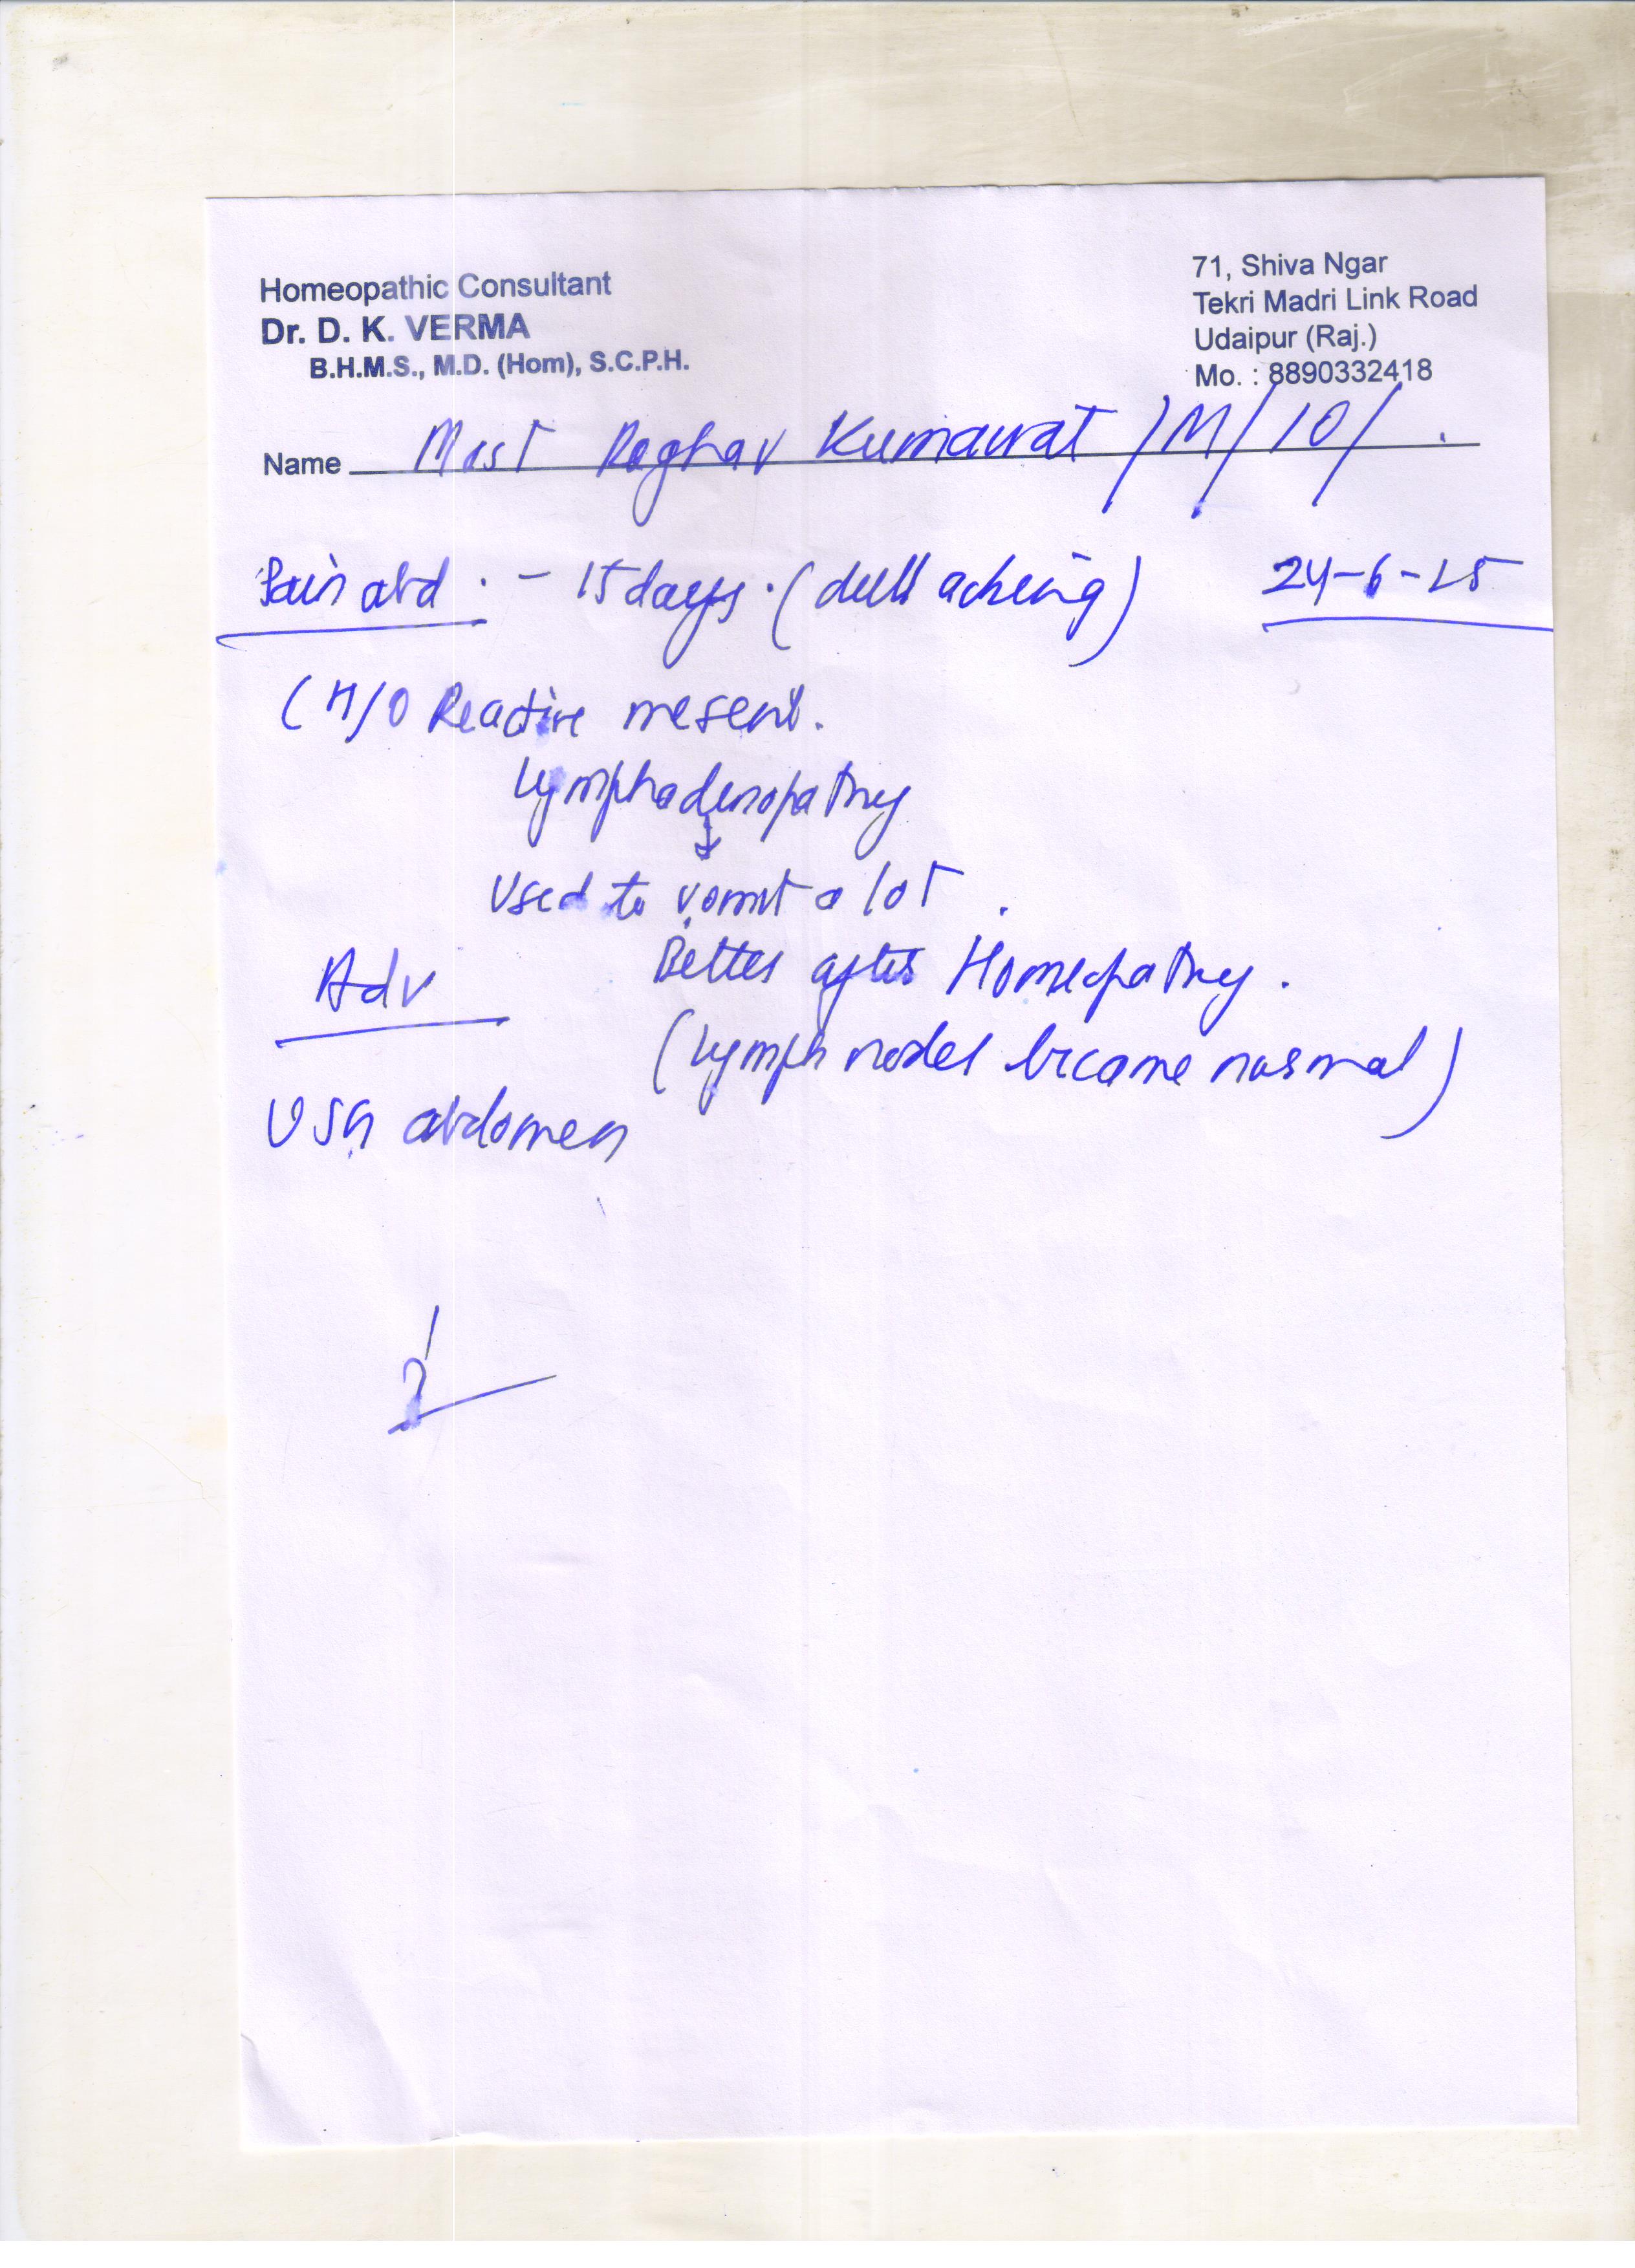 Homeopathic Consultant
Dr. D. K. VERMA
B.H.M.S., M.D. (Hom), S.C.P.H.
71, Shiva Ngar
Tekri Madri Link Road
Udaipur (Raj.)
Mo. : 8890332418
Name Mast Raghav Kumawat /M/10/.
Pain abd. - 15 days. (dull aching) 24-6-25
(H/O Reactive mesent.
Lymphadenopathy
↓
Used to vomit a lot.
Better after Homeopathy.
(Lymph nodes became normal)
Adv
USG abdomen